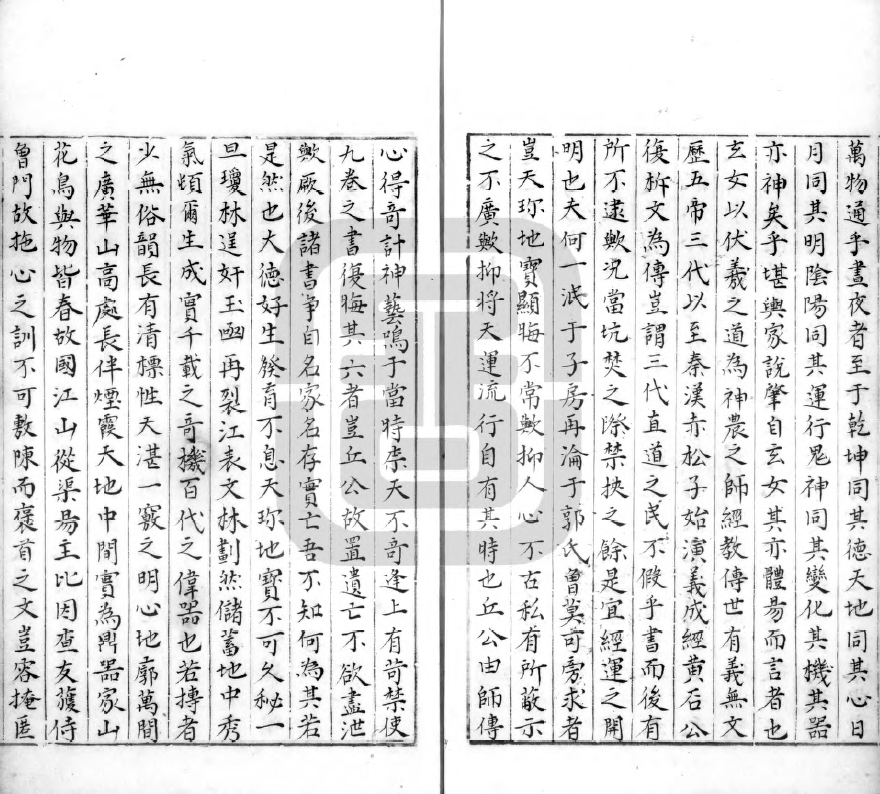 萬物通乎晝夜者至于乾坤同其德天地同其心日
月同其明陰陽同其運行鬼神同其變化其機其器
亦神矣乎堪輿家說肇自玄女其亦體易而言者也
玄女以伏羲之道為神農之師經教傳世有義無文
歷五帝三代以至秦漢赤松子始演義成經黃石公
復析文為傳豈謂三代直道之民不假乎書而後有
所不逮歟況當坑焚之際禁挾之餘是宜經運之開
明也夫何一泯于子房再淪于郭氏曾莫可旁求者
豈天珎地寶顯晦不常歟抑人心不古私有所蔽示
之不廣歟抑將天運流行自有其時也丘公由師傳
心得竒計神藝鳴于當時柰天不竒逢上有苛禁使
九卷之書復晦其六者豈丘公故置遺亡不欲盡泄
歟厥後諸書爭自名家名存實亡吾不知何為其若
是然也大德好生發育不息天珎地寶不可久秘一
旦瓊林逞奸玉凾再裂江表文林劃然儲蓄地中秀
氣頓爾生成實千載之竒機百代之偉器也若摶者
少無俗韻長有清標性天湛一竅之明心地廓萬間
之廣華山高處長伴煙霞天地中間實為鼎器家山
花鳥與物皆春故國江山從渠易主比因查友薩侍
曾門故拖心之訓不可敷陳而褒首之文豈容掩匿